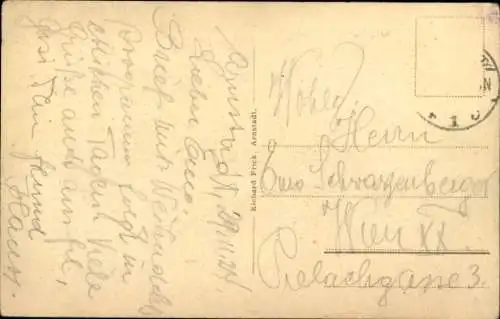 Arnstadt, 29.11.24.
Lieber Emo!
Brief mit Weihnachts
programm folgt in
etlichen Tagen. Viele
Grüße auch an
Dein Freund
Hans.
Richard Frick, Arnstadt.
Wohlg.
Herrn
Emo Schwarzenberger
Wien XX.
Pielachgasse 3.